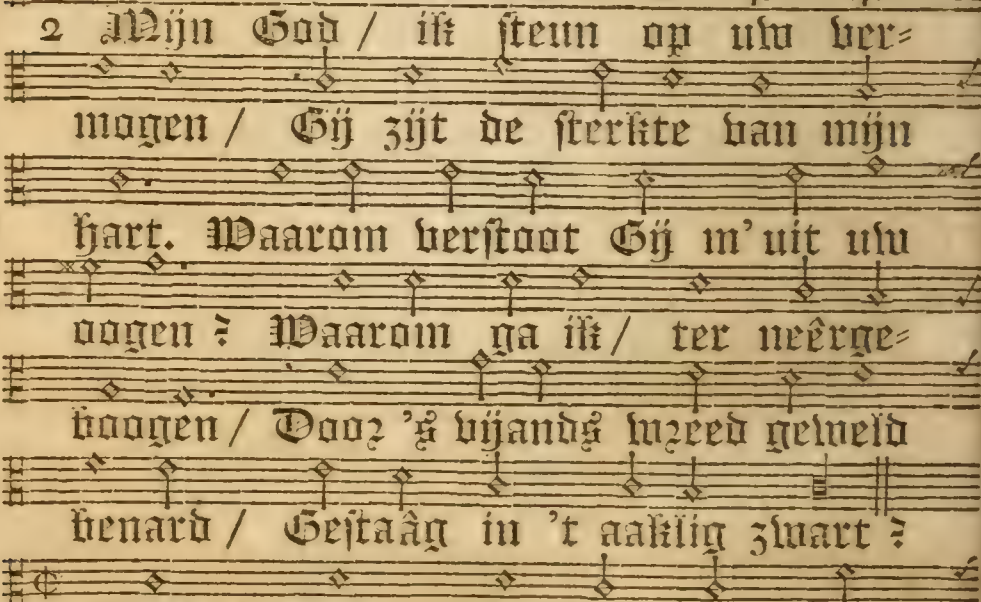 2 Mijn God / ik steun op uw ver=
mogen / Gij zijt de sterkte van mijn
hart. Waarom verstoot Gij m' uit uw
oogen? Waarom ga ik / ter neêrge=
boogen / Door 's vijands wreed geweld
benard / Gestaâg in 't aaklig zwart?